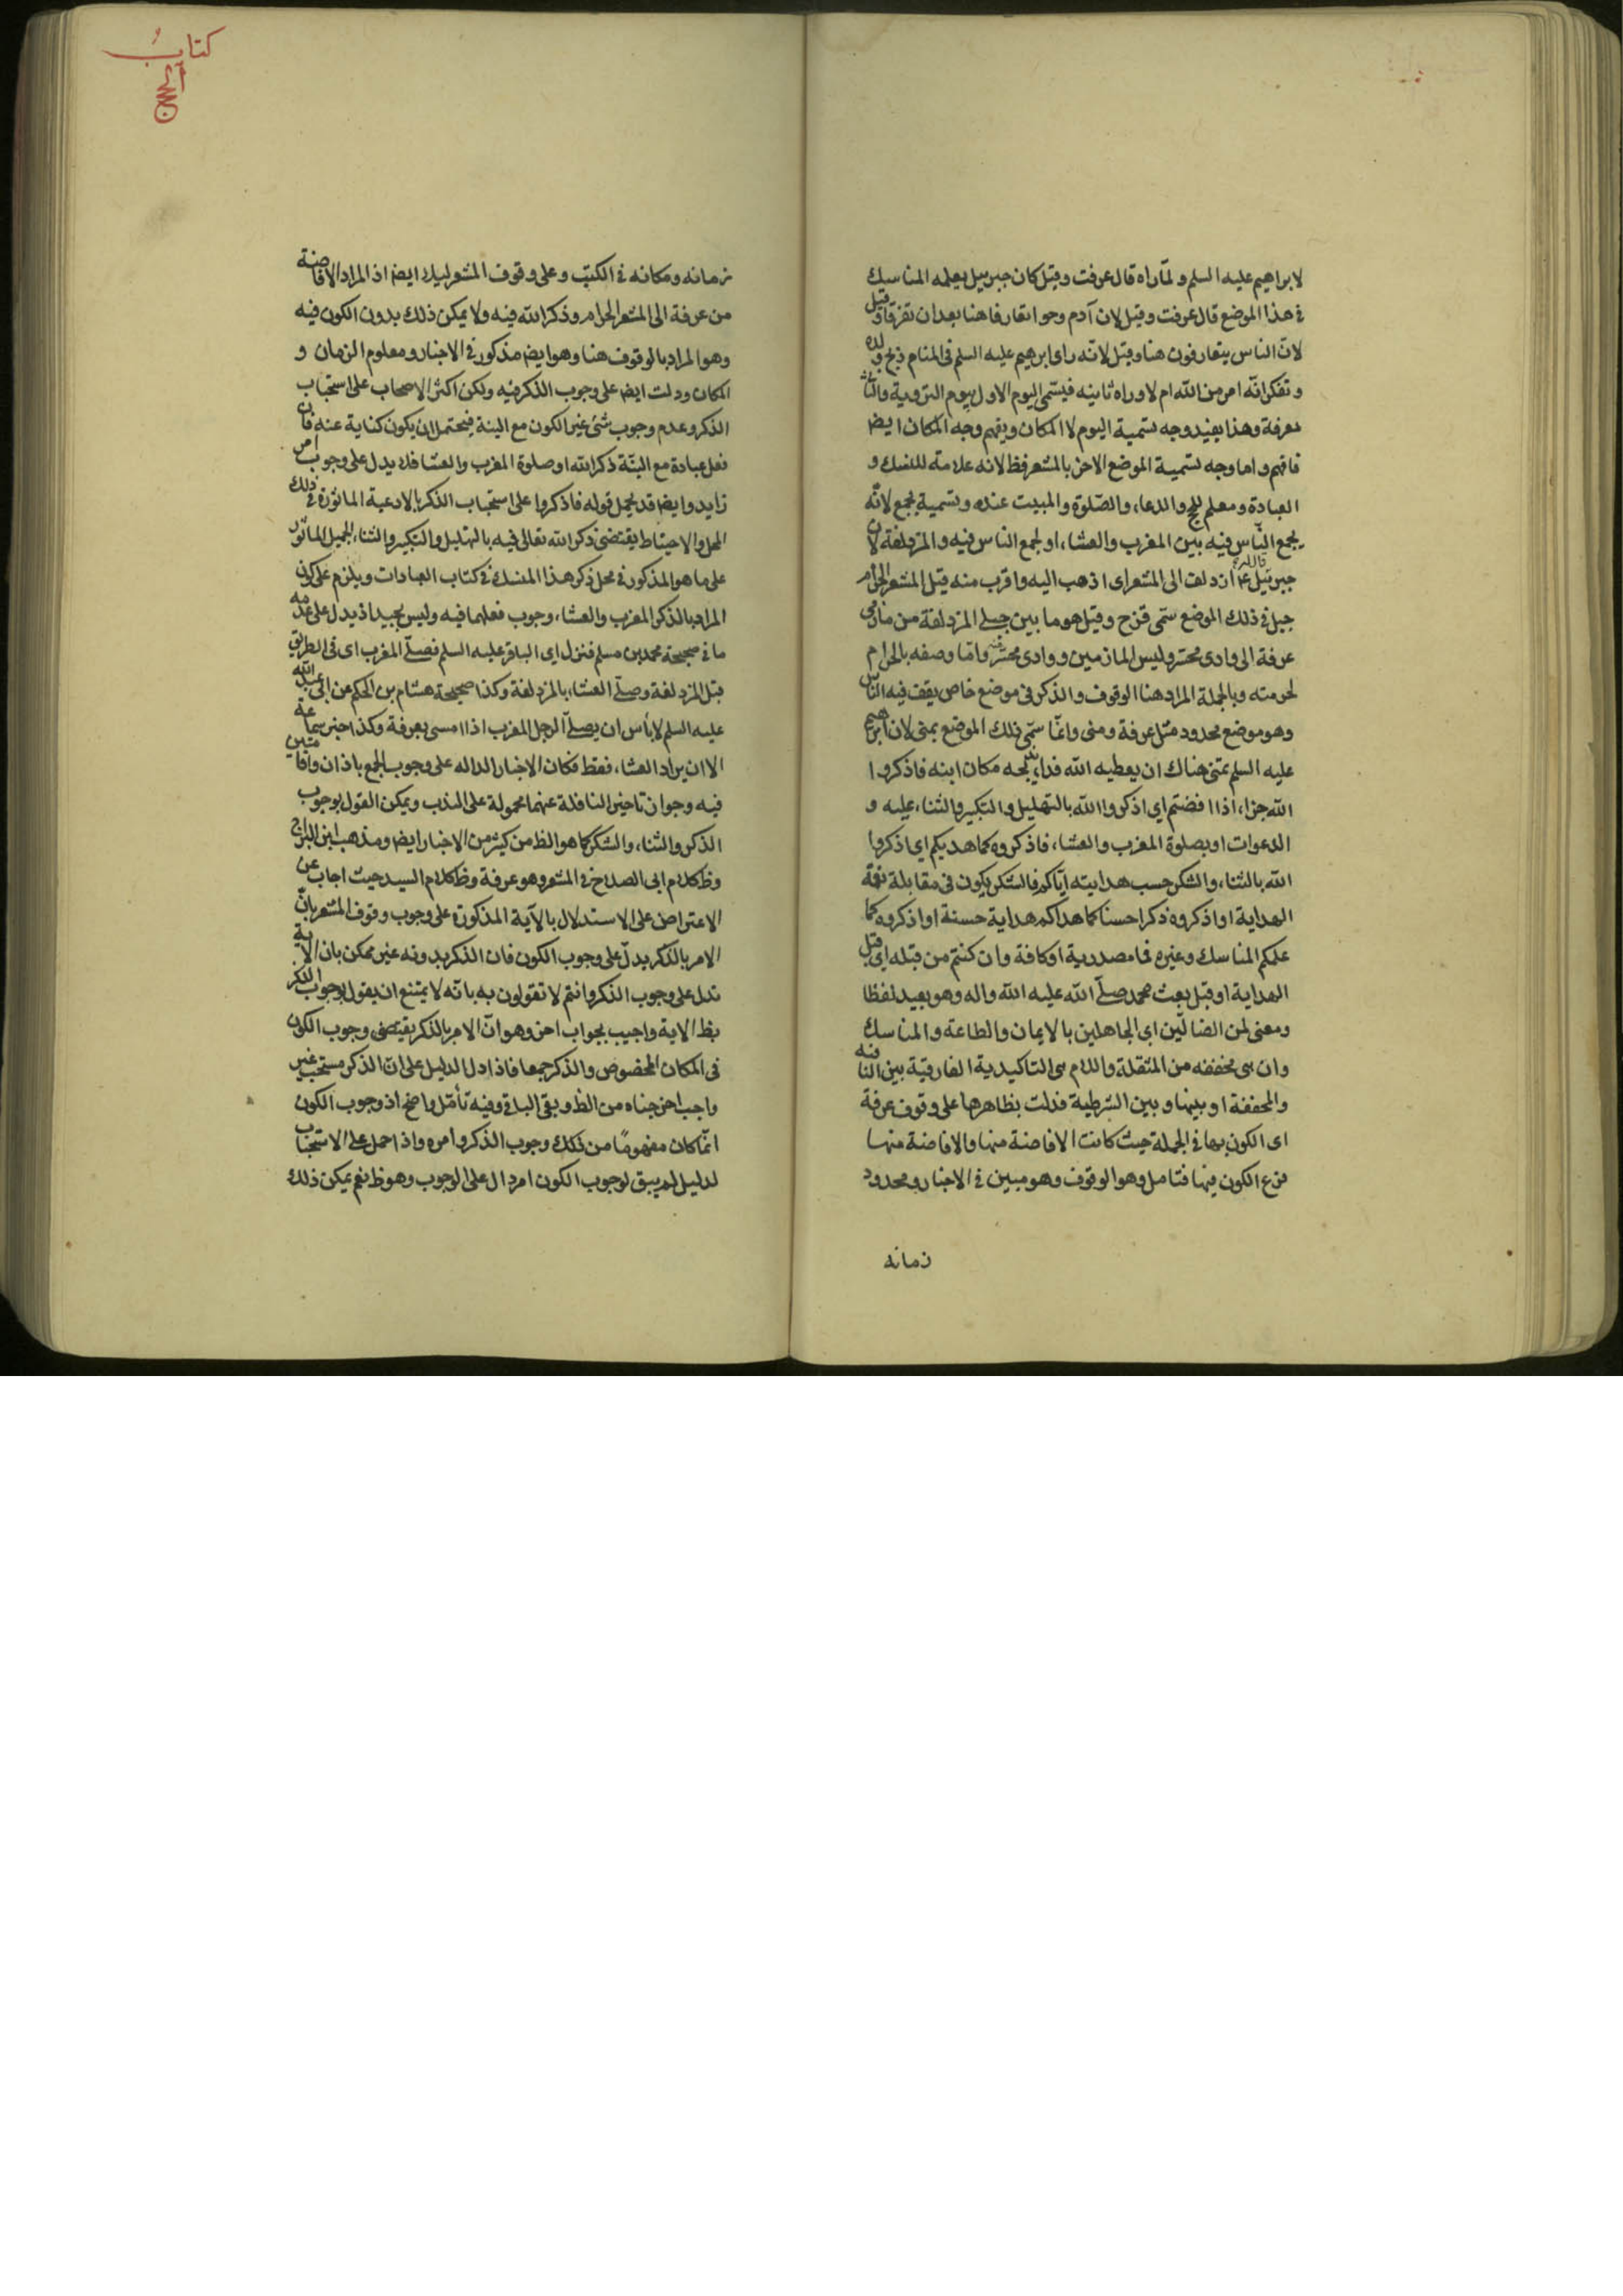 لابراهيم عليه السلم ولمّا راه قال عرفت وقيل كان جبرييل يعلمه المناسك
في هذا الموضع قال عرفت وقيل لان آدم وحوا تعارفا هنا بعد ان تفرقا وقيل
لانّ الناس يتعارفون هنا وقيل لانّه راى ابرهيم عليه السلم فى المنام ذبح ولده
وتفكر انّه امر من الله ام لا وراه ثانيه فيسمّى اليوم الاول بيوم التروية والثانى
بعرفة وهذا يفيد وجه تسمية اليوم لا المكان ويفهم وجه المكان ايضا
فافهم واما وجه تسمية الموضع الاخر بالمشعر فظ لانه علامة للنسك و
العبادة ومعلم للحج والدعاء والصّلوة والمبيت عنده وتسمية بجمع لانّه
يجمع النّاس فيه بين المغرب والعشاء او لجمع الناس فيه والمزدلفة لان
جبرئيل ع قال له ازدلف الى المشعر اى اذهب اليه واقرب منه قيل المشعر الحرام
جبل في ذلك الموضع سمّى قزح وقيل هو ما بين جبلى المزدلفة من مازمى
عرفة الى وادى محسّر وليس المازمين ووادى محسّر منه وامّا وصفه بالحرام
لحرمته وبالجملة المراد هنا الوقوف والذكر فى موضع خاص يقف فيه النّاس
وهو موضع محدود مثل عرفة ومنى وانّما سمّى ذلك الموضع بمنى لان ابرهيم
عليه السلم تمنى هناك ان يعطيه الله فداء يذبحه مكان ابنه فاذكروا
الله جزاء اذا افضتم اى اذكروا الله بالتهليل والتكبير والثناء عليه و
الدعوات او بصلوة المغرب والعشاء فاذكروه كما هديكم اى اذكروا
الله بالثناء والشكر حسب هدايته ايّاكم فالشكر يكون فى مقابلة نعمة
الهداية او اذكروه ذكرا حسنا كما هداكم هداية حسنة او اذكروه كما
علمكم المناسك وغيره فما مصدرية او كافة وان كنتم من قبله اى قبل
الهداية او قبل بعث محمد صلّى الله عليه الله واله وهو بعيد لفظا
ومعنى لمن الضالّين اى الجاهلين بالايمان والطاعة والمناسك
وان هى مخففه من المثقلة واللام هى التاكيدية الفارقيّة بين النافيه
والمخففة او بينها وبين الشرطية فدلت بظاهرها على وقوف عرفة
اى الكون بها فى الجملة حيث كانت الافاضة منها والافاضة منها
فرع الكون فيها فتامل وهو الوقوف وهو مبين فى الاخبار ومحدود
زمانه
كتاب
الحج
زمانه ومكانه في الكتب وعلى وقوف المشعر ليلا ايضا اذ المراد الافاضة
من عرفة الى المشعر الحرام وذكر الله فيه ولا يمكن ذلك بدون الكون فيه
وهو المراد بالوقوف هنا وهو ايضا مذكور في الاخبار ومعلوم الزمان و
المكان ودلت ايضا على وجوب الذكر فيه ولكن اكثر الاصحاب على استحباب
الذكر وعدم وجوب شئ غير الكون مع النية فيحتمل ان يكون كناية عنه فان
فعل عبادة مع النيّة ذكر الله او صلوة المغرب والعشا فلا يدل على وجوب امر
زايد وايضا قد يحمل قوله فاذكروا على استحباب الذكر بالادعية الماثورة في ذلك
المحل والاحتياط يقتضى ذكر الله تعالى فيه بالتهليل والتكبير والثناء الجميل الماثور
على ما هو المذكور في محل ذكر هذا المنسك فى كتاب العبادات ويلزم على كون
المراد بالذكر المغرب والعشاء وجوب فعلهما فيه وليس بجيد اذ يدل على عدمه
ما في صحيحة محمد بن مسلم فنزل اى الباقر عليه السلم فصلّى المغرب اى فى الطريق
قبل المزدلفة وصلّى العشاء بالمزدلفة وكذا صحيحة هشام بن الحكم عن ابى عبد الله
عليه السلم لا باس ان يصلّى الرجل المغرب اذا امسى بعرفة وكذا خبر سماعة
الا ان يراد العشاء فقط فكان الاخبار الداله على وجوب الجمع باذان واقامتين
فيه وجواز تاخير النافلة عنهما محمولة على الندب ويمكن القول بوجوب
الذكر والثناء والشكر كما هو الظ من كثير من الاخبار ايضا ومذهب ابن البراج
وظ كلام ابى الصلاح في المشعر وهو عرفة وظ كلام السيد حيث اجاب عن
الاعتراض على الاستدلال بالآية المذكورة على وجوب وقوف المشعر بانّ
الامر بالذكر يدلّ على وجوب الكون فان الذكر بدونه غير ممكن بان الاية
تدل على وجوب الذكر وانتم لا تقولون به بانّه لا يمتنع ان يقول بوجوب الذكر
بظ الاية واجيب بجواب اخر وهو انّ الامر بالذكر يقتضى وجوب الكون
فى المكان المخصوص والذكر جمعا فاذا دل الدليل على انّ الذكر مستحب غير
واجب اخرجناه من الظ وبقى الباقى وفيه تأمّل واضح اذ وجوب الكون
انّما كان مفهومًا من ذلك وجوب الذكر وامره واذا حمل على الاستحباب
لدليل لم يبق لوجوب الكون امر دال على الوجوب وهو ظ نعم يمكن ذلك